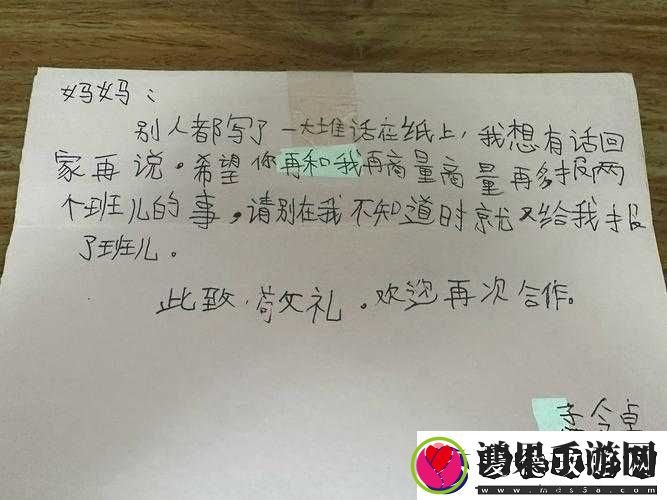 妈妈：
别人都写了一大堆话在纸上，我想有话回
家再说。希望你再和我再商量商量再多报两
个班儿的事，请别在我不知道时就又给我报
了班儿。
此致，敬礼。欢迎再次合作。
鸿果手游网
www.mds5a.com